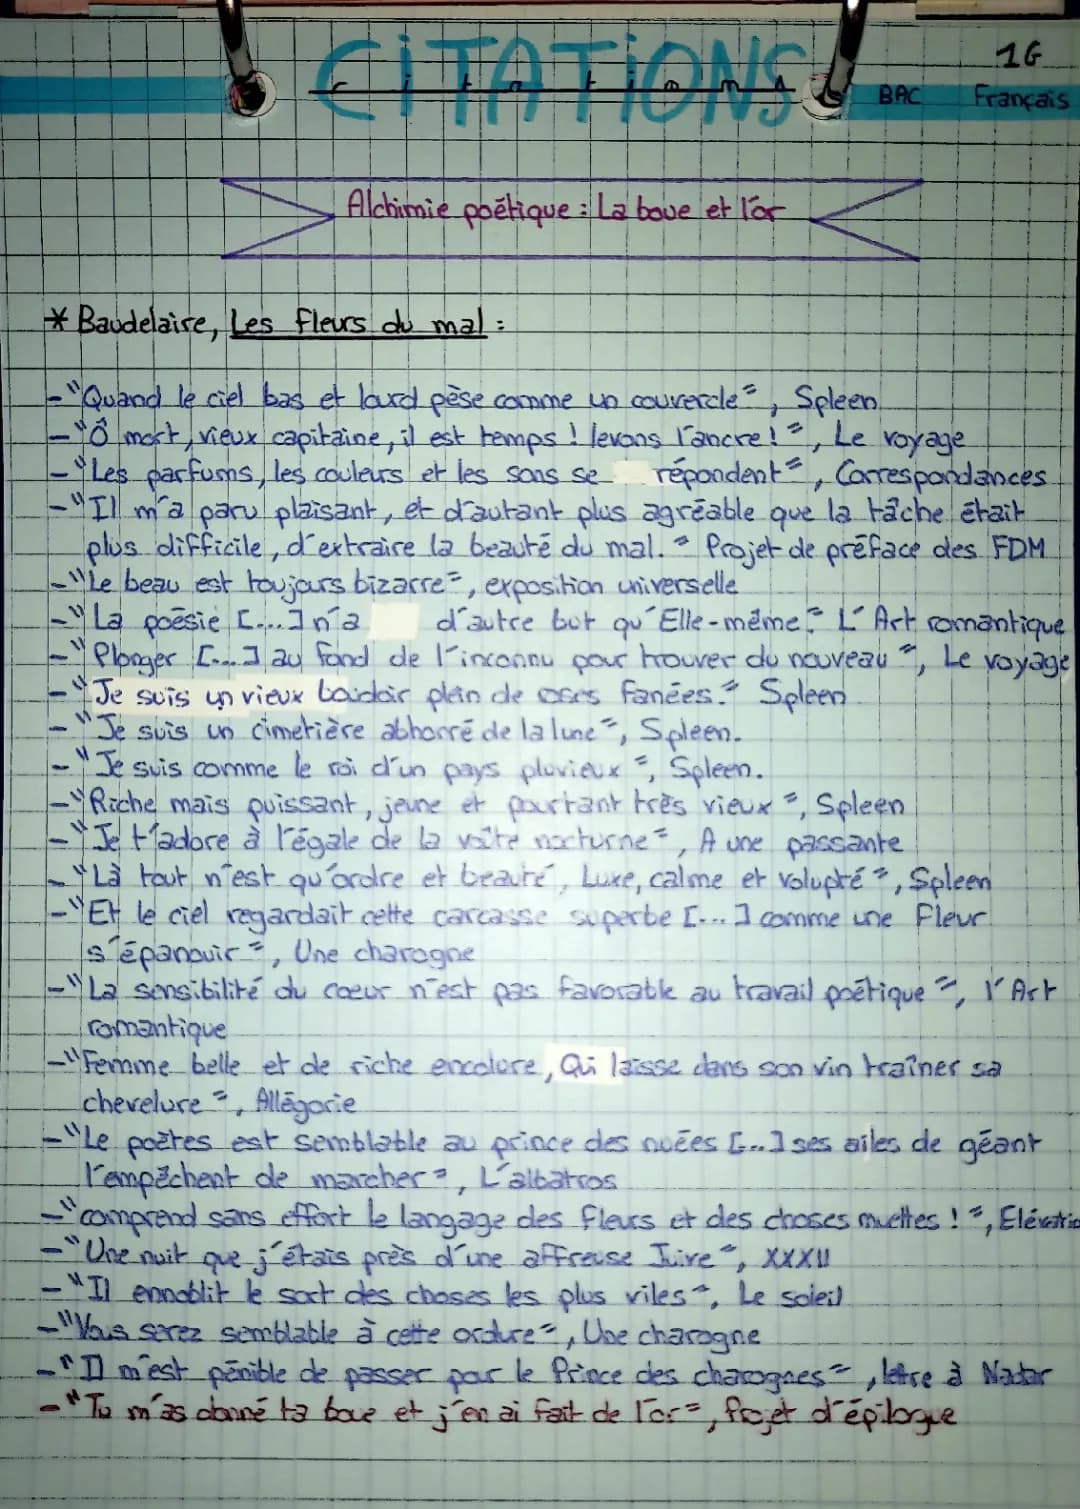 CiTATiONS
citations
1G
BAC Français
Alchimie poétique : La boue et l'or
* Baudelaire, Les Fleurs du mal :
- "Quand le ciel bas et lourd pèse comme un couvercle", Spleen
- "Ô mort, vieux capitaine, il est temps ! levons l'ancre !", Le voyage
- "Les parfums, les couleurs et les sons se répondent", Correspondances
- "Il m'a paru plaisant, et d'autant plus agréable que la tâche était
plus difficile, d'extraire la beauté du mal." Projet de préface des FDM
- "Le beau est toujours bizarre", exposition universelle
- "La poésie [...] n'a d'autre but qu'Elle-même." L'Art romantique
- "Plonger [...] au fond de l'inconnu pour trouver du nouveau", Le voyage
- "Je suis un vieux boudoir plein de roses fanées." Spleen
- "Je suis un cimetière abhorré de la lune", Spleen.
- "Je suis comme le roi d'un pays pluvieux", Spleen.
- "Riche mais puissant, jeune et pourtant très vieux", Spleen
- "Je t'adore à l'égale de la voûte nocturne", A une passante
- "Là tout n'est qu'ordre et beauté, Luxe, calme et volupté", Spleen
- "Et le ciel regardait cette carcasse superbe [...] comme une Fleur
s'épanouir", Une charogne
- "La sensibilité du coeur n'est pas favorable au travail poétique", l'Art
romantique
- "Femme belle et de riche encolure, Qui laisse dans son vin traîner sa
chevelure", Allégorie
- "Le poètes est semblable au prince des nuées [...] ses ailes de géant
l'empêchent de marcher", L'albatros
- "comprend sans effort le langage des fleurs et des choses muettes !", Elévatio
- "Une nuit que j'étais près d'une affreuse Juive", XXXII
- "Il ennoblit le sort des choses les plus viles", Le soleil
- "Vous serez semblable à cette ordure", Une charogne
- "Il m'est pénible de passer pour le Prince des charognes", lettre à Nadar
- "Tu m'as donné ta boue et j'en ai fait de l'or", Projet d'épilogue